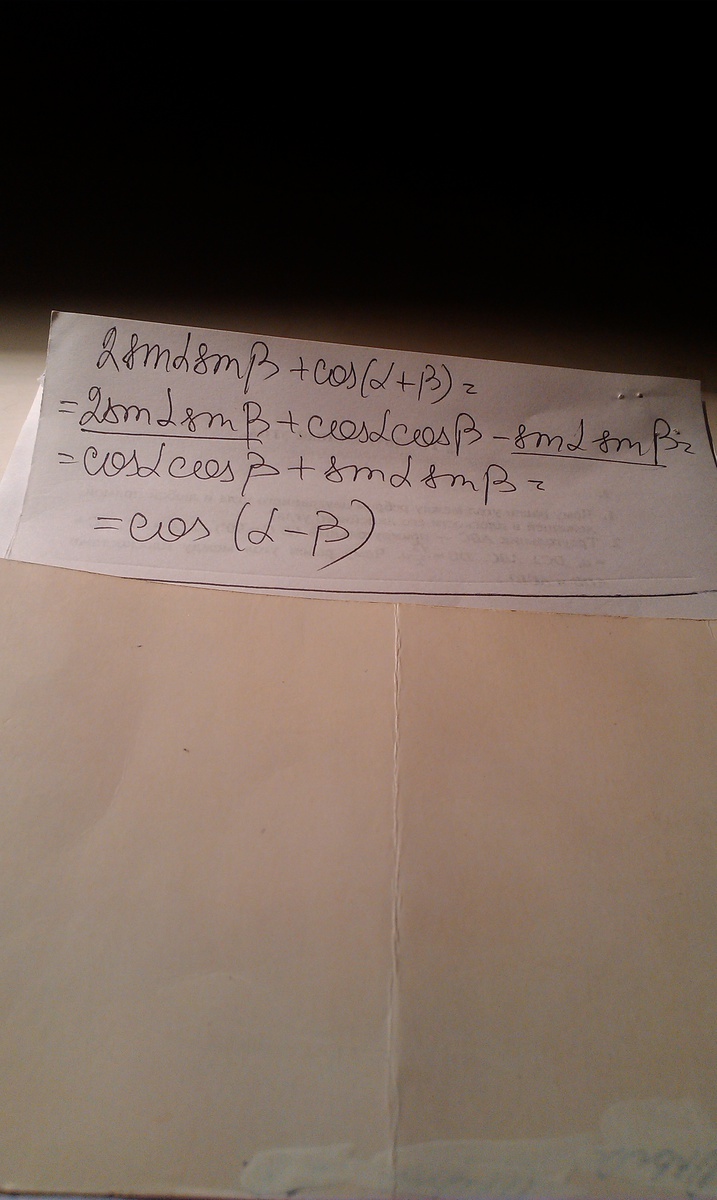 2sinαsinβ+cos(α+β)=
=2sinαsinβ+cosαcosβ-sinαsinβ=
=cosαcosβ+sinαsinβ=
=cos(α-β)